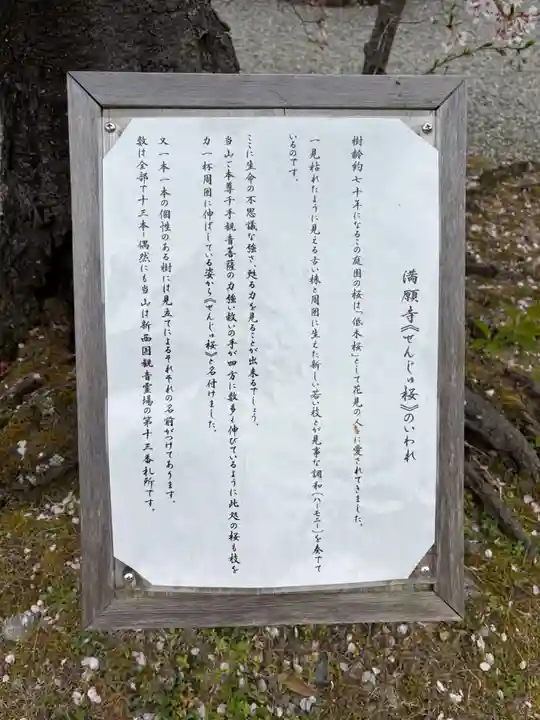 満願寺《せんじゅ桜》のいわれ
樹齢約七十年になるこの庭園の桜は「低木桜」として花見の人々に愛されてきました。
一見枯れたように見える古い株と周囲に生えた新しい若い枝とが見事な調和(ハーモニー)を奏でて
いるのです。
ここに生命の不思議な強さ、甦る力を見ることが出来るでしょう。
当山ご本尊千手観音菩薩の力強い救いの手が四方に数多う伸びているように此処の桜も枝を
力一杯周囲に伸ばしている姿から《せんじゅ桜》と名付けました。
又一本一本の個性のある樹には見立てによるそれぞれの名前がつけてあります。
数は全部で十三本!偶然にも当山は新西国観音霊場の第十三番札所です。